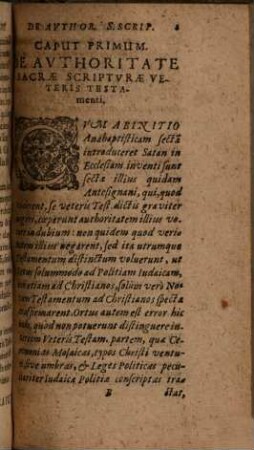 DE AVTHOR. S. SCRIP.
CAPUT PRIMUM.
DE AVTHORITATE
SACRÆ SCRIPTVRÆ VE-
TERIS TESTA-
menti.
CVM AB INITIO
Anabaptisticam sectã
introduceret Satan in
Ecclesiam inventi sunt
sectæ illius quidam
Antesignani, qui, quod
, se veteris Test. dictis graviter
, cœperunt authoritatem illius vo-
in dubium: non quidem quod verio-
illius negarent, sed ita utrumque
Testamentum distinctum voluerunt, ut
solummodo ad Politiam Iudaicam,
ad Christianos, solum verò No-
Testamentum ad Christianos specta-
affirmarent. Ortus autem est error hic
, quod non potuerunt distinguere in-
Veteris Testam. partem, quæ Ce-
Mosaicas, typos Christi ventu-
umbras, & Leges Politicas pecu-
Iudaicæ Politiæ conscriptas trac-
B